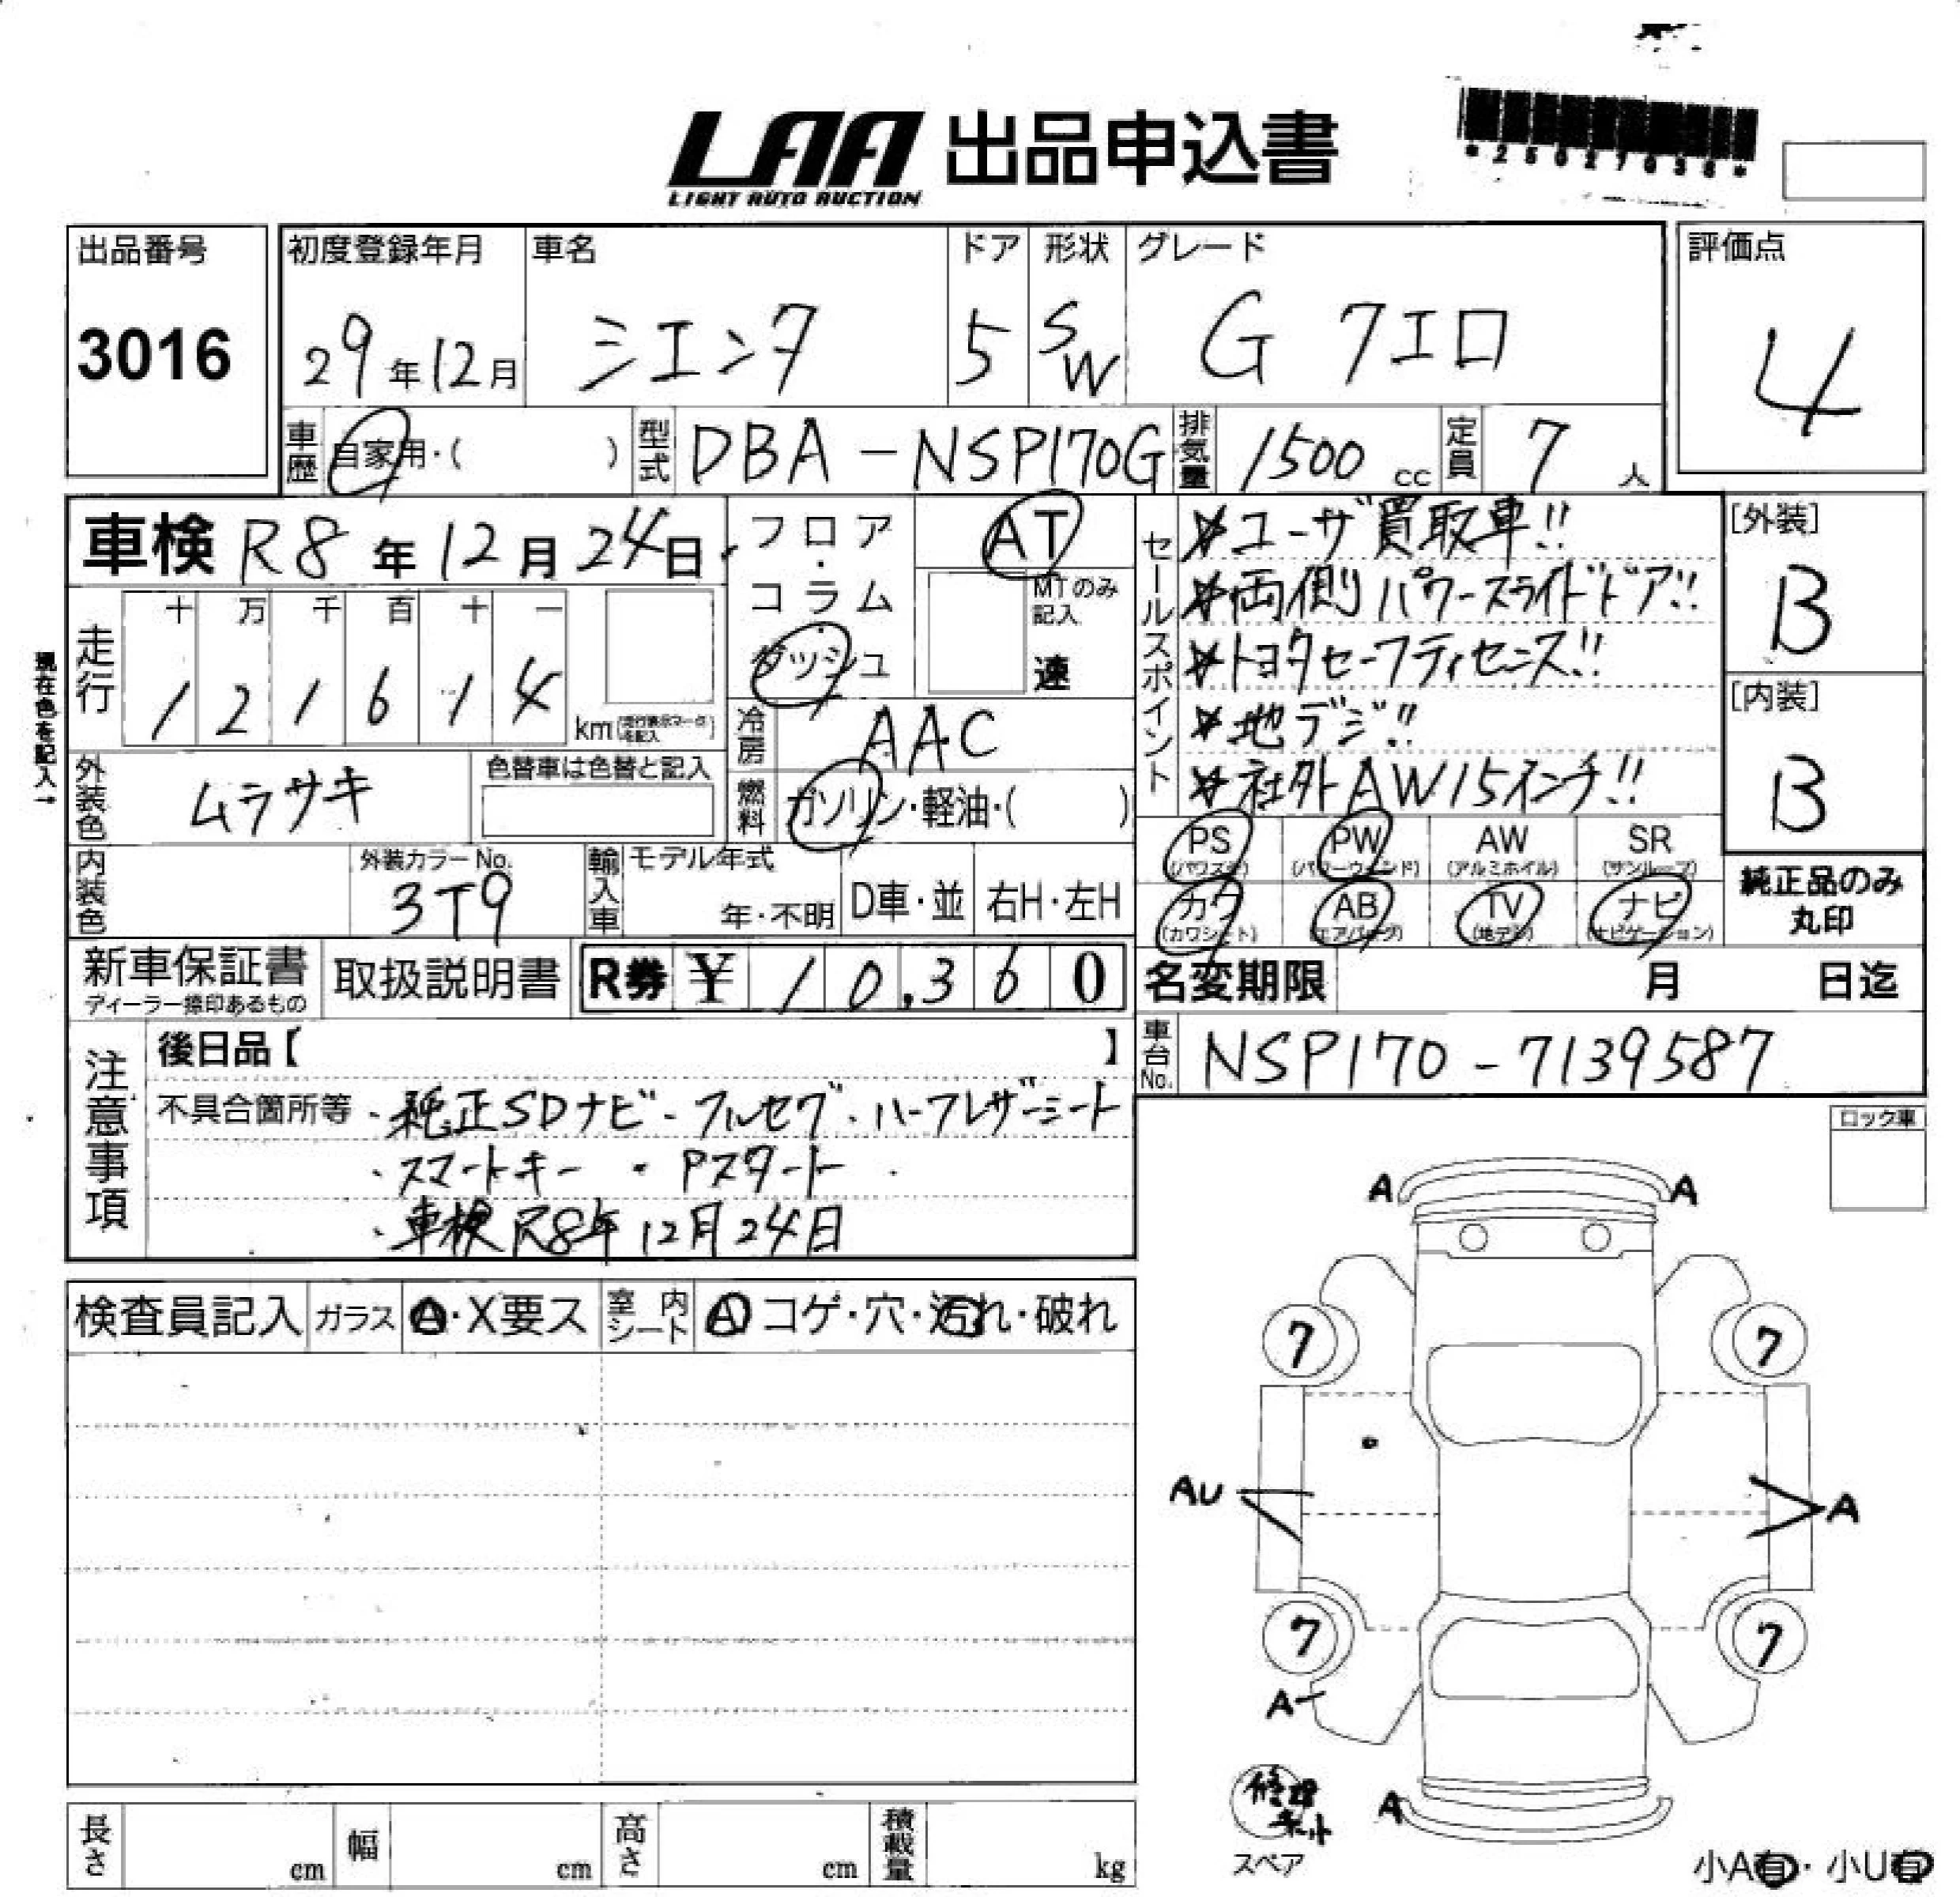 LAA 出品申込書
LIGHT AUTO AUCTION
出品番号
3016
初度登録年月
29年12月
車名
シエンタ
ドア
5
形状
SW
グレード
G クエロ
評価点
4
車歴
自家用・( )
型式
DBA-NSP170G
排気量
1500 cc
定員
7 人
車検 R8年12月24日
フロア・コラム・ダッシュ
AT
MTのみ記入
速
走行
十 万 千 百 十 一
1 2 1 6 1 4
km
現在色を記入→
外装色
ムラサキ
色替車は色替と記入
冷房
AAC
燃料
ガソリン・軽油・( )
内装色
外装カラーNo.
3T9
輸入車
モデル年式
年・不明
D車・並
右H・左H
セールスポイント
ユーザ買取車!!
両側パワースライドドア!!
トヨタセーフティセンス!!
地デジ!!
社外AW15インチ!!
[外装]
B
[内装]
B
PS PW AW SR
(パワステ) (パワーウィンド) (アルミホイル) (サンルーフ)
カワ AB TV ナビ
(カワシート) (エアバッグ) (地デジ) (ナビゲーション)
純正品のみ
丸印
新車保証書
ディーラー捺印あるもの
取扱説明書
R券 ¥ 10,360
名変期限 月 日迄
車台No.
NSP170-7139587
注意事項
後日品【 】
不具合箇所等 ・純正SDナビ・フルセグ・ハーフレザーシート
・スマートキー ・Pスタート
・車検R8年12月24日
ロック車
検査員記入
ガラス
A・X要ス
室内シート
A コゲ・穴・汚れ・破れ
A A
7 7
AU A
7 7
A
修理キット
スペア
A
小A有・小U有
長さ cm
幅 cm
高さ cm
積載量 kg